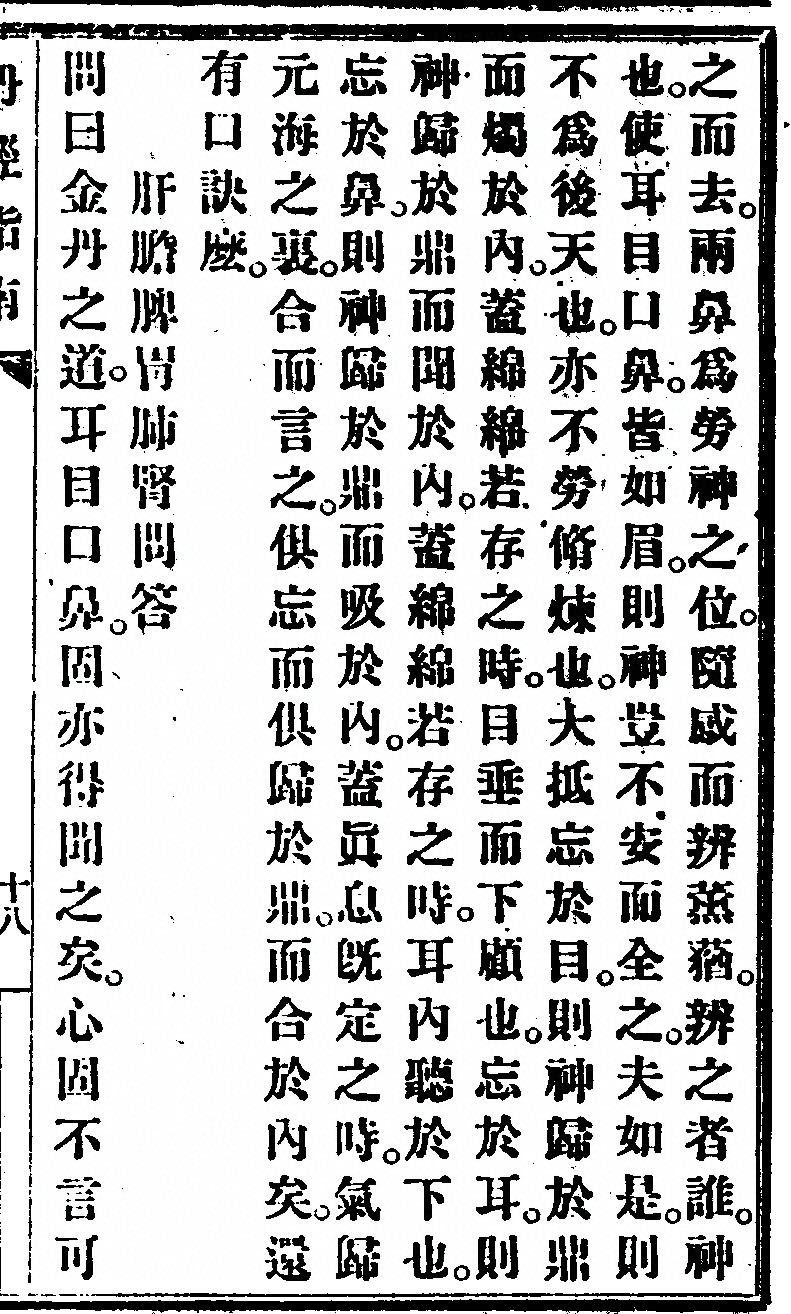 之而去。兩鼻爲勞神之位。隨感而辨薰蕕。辨之者誰。神
也。使耳目口鼻。皆如眉。則神豈不安而全之。夫如是。則
不爲後天也。亦不勞脩煉也。大抵忘於目。則神歸於鼎
而燭於內。蓋綿綿若存之時。目垂而下顧也。忘於耳。則
神歸於鼎而聞於內。蓋綿綿若存之時。耳內聽於下也。
忘於鼻。則神歸於鼎而吸於內。蓋眞息既定之時。氣歸
元海之裏。合而言之。俱忘而俱歸於鼎。而合於內矣。還
有口訣麽。
肝膽脾胃肺腎問答
問曰金丹之道。耳目口鼻。固亦得聞之矣。心固不言可
丹經指南
十八